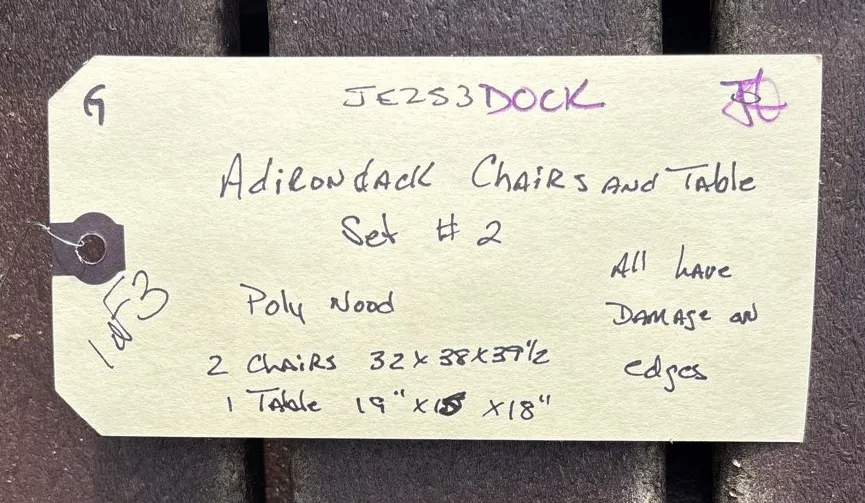 G
JE2S3 DOCK
Adirondack Chairs and Table
Set # 2
Poly Wood
All have
Damage on
edges
2 Chairs 32 x 38 x 39 1/2
1 Table 19" x 18"
1 of 3